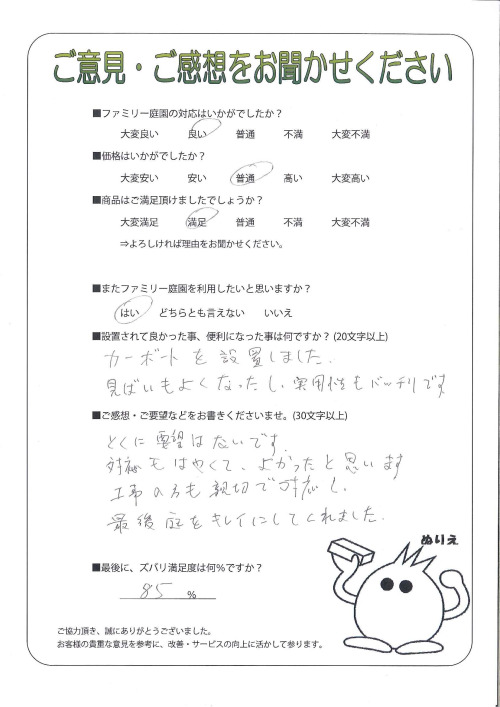 ご意見・ご感想をお聞かせください
■ファミリー庭園の対応はいかがでしたか？
大変良い 良い 普通 不満 大変不満
■価格はいかがでしたか？
大変安い 安い 普通 高い 大変高い
■商品はご満足頂けましたでしょうか？
大変満足 満足 普通 不満 大変不満
⇒よろしければ理由をお聞かせください。
■またファミリー庭園を利用したいと思いますか？
はい どちらとも言えない いいえ
■設置されて良かった事、便利になった事は何ですか？(20文字以上)
カーポートを設置しました.
見ばいもよくなったし、実用性もバッチリです
■ご感想・ご要望などをお書きくださいませ。(30文字以上)
とくに要望はないです.
対応もはやくて、よかったと思います
工事の方も親切で対応し、
最後庭をキレイにしてくれました.
ぬりえ
■最後に、ズバリ満足度は何％ですか？
85 ％
ご協力頂き、誠にありがとうございました。
お客様の貴重な意見を参考に、改善・サービスの向上に活かして参ります。